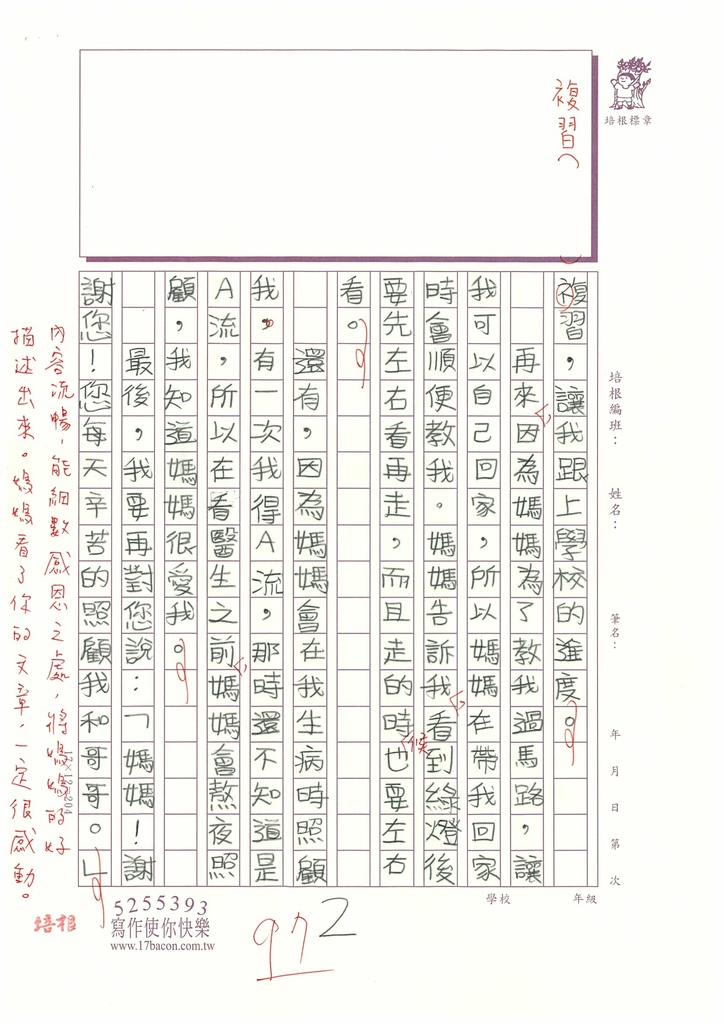 培根標章
複習（ ）
培根編班：
姓名：
筆名：
年 月 日 第 次
學校 年級
複習，讓我跟上學校的進度。
再來因為媽媽為了教我過馬路，讓
我可以自己回家，所以媽媽在帶我回家
時會順便教我。媽媽告訴我看到綠燈後
要先左右看再走，而且走的時也要左右
候
看。
還有，因為媽媽會在我生病時照顧
我，有一次我得A流，那時還不知道是
A流，所以在看醫生之前媽媽會熬夜照
顧，我知道媽媽很愛我。
最後，我要再對您說：「媽媽！謝
謝您！您每天辛苦的照顧我和哥哥。」
內容流暢，能細數感恩之處，將媽媽的好
描述出來。媽媽看了你的文章，一定很感動。
培根
5255393
寫作使你快樂
www.17bacon.com.tw
97
2